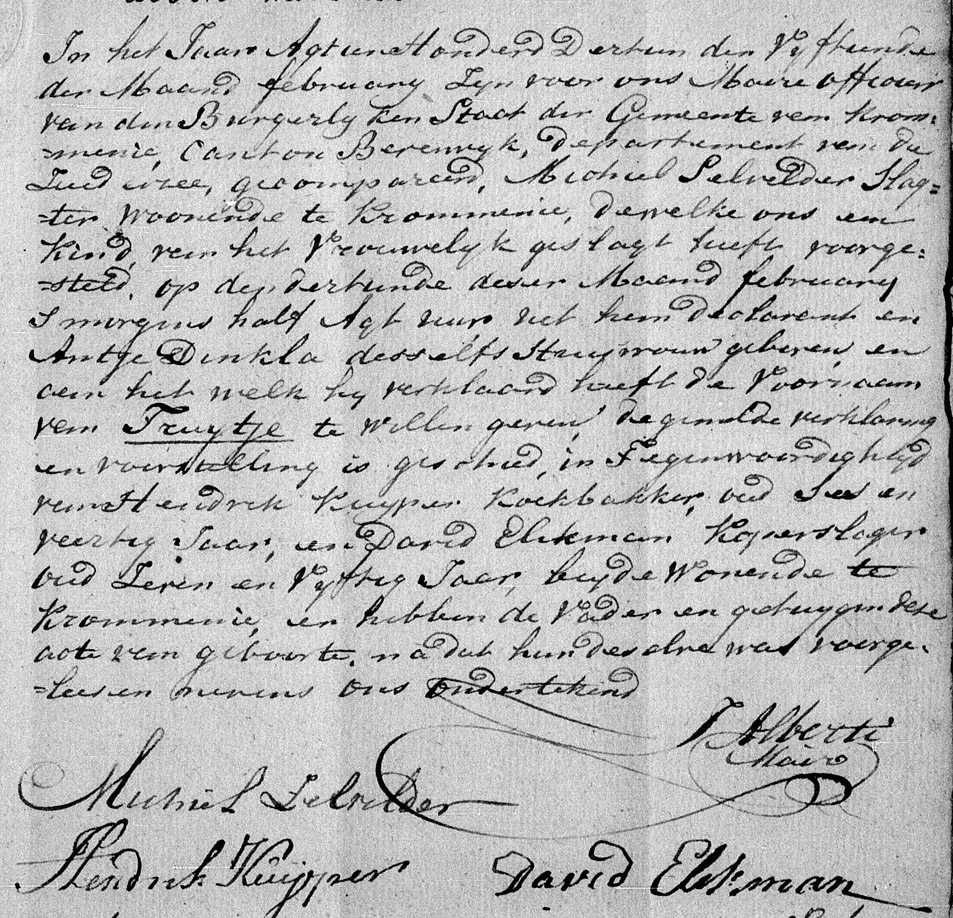 In het Jaar Agtien Honderd Dertien den Vyftiende
der Maand february Zyn voor ons Maire officier
van den Burgerlyken Staat der Gemeente van Krom:
=menie, Canton Beverwyk, departement van de
Zuid erzee, gecompareerd, Michiel Selvelder Slag=
=ter Woonende te Krommenie, dewelke ons een
Kind, van het Vrouwelyk geslagt heeft voorge:
=steld, op den dertiende deser Maand february
S morgens half Agt uur, uit hem declarent en
Antje Dinkla desselfs Huysvrouw geboren, en
aan het welk hy verklaard heeft de Voornaam
van Truytje te willen geven, de gemelde verklaring
en voorstelling is geschied, in Tegenwoordigheyd
van Hendrik Kuyper Koekbakker, oud Ses en
veertig Jaar, en David Elekman Koperslager
oud Zeven en Vyftig Jaar, beyde Wonende te
Krommenie, en hebben de Vader en getuygen dese
acte van geboorte, na dat hun deselve was voorge,
=leesen nevens ons ondertekend
J Alberti
Maire
Michiel Selvelder
Hendrik Kuijper David Elekman